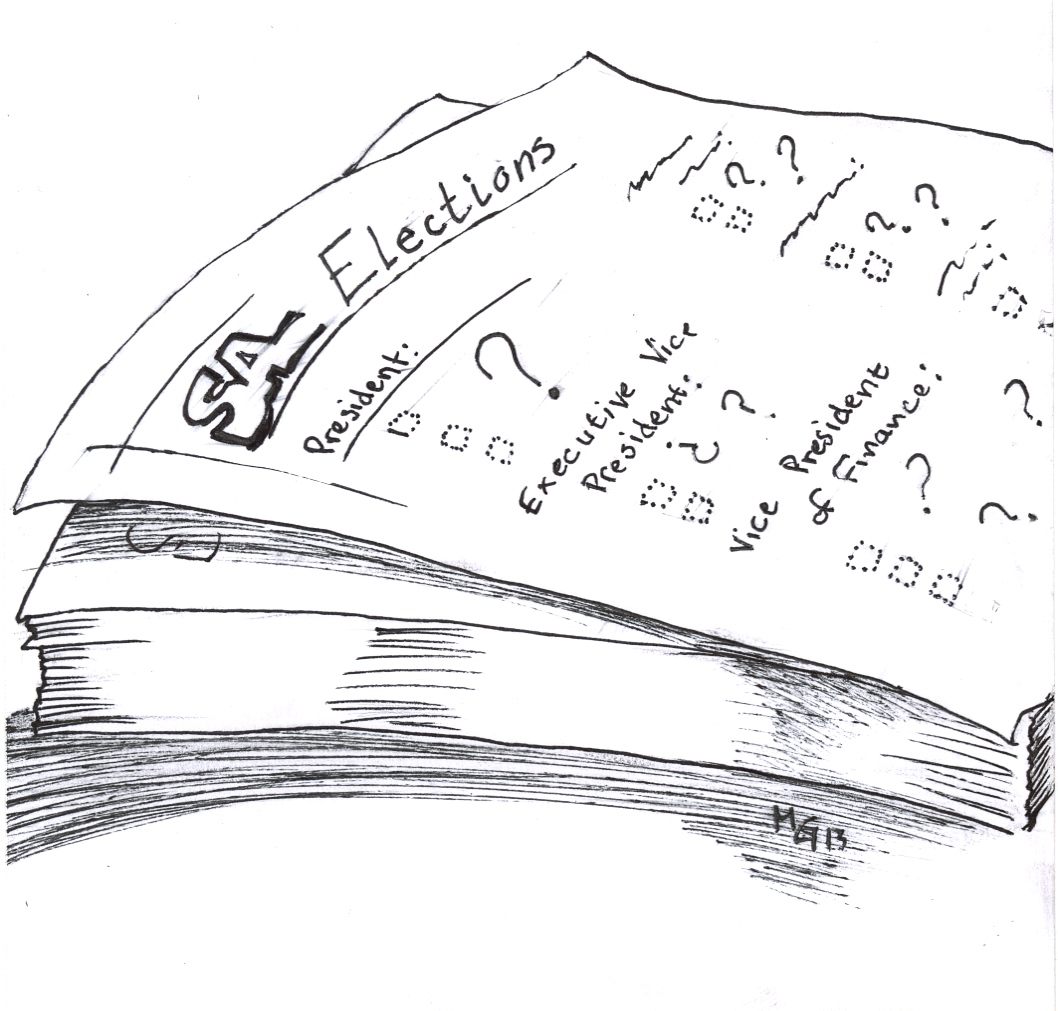 SA Elections
President:
?
Executive Vice
President:
? ?
Vice President
of Finance:
? ?
?
? ?
? ?
MG 13